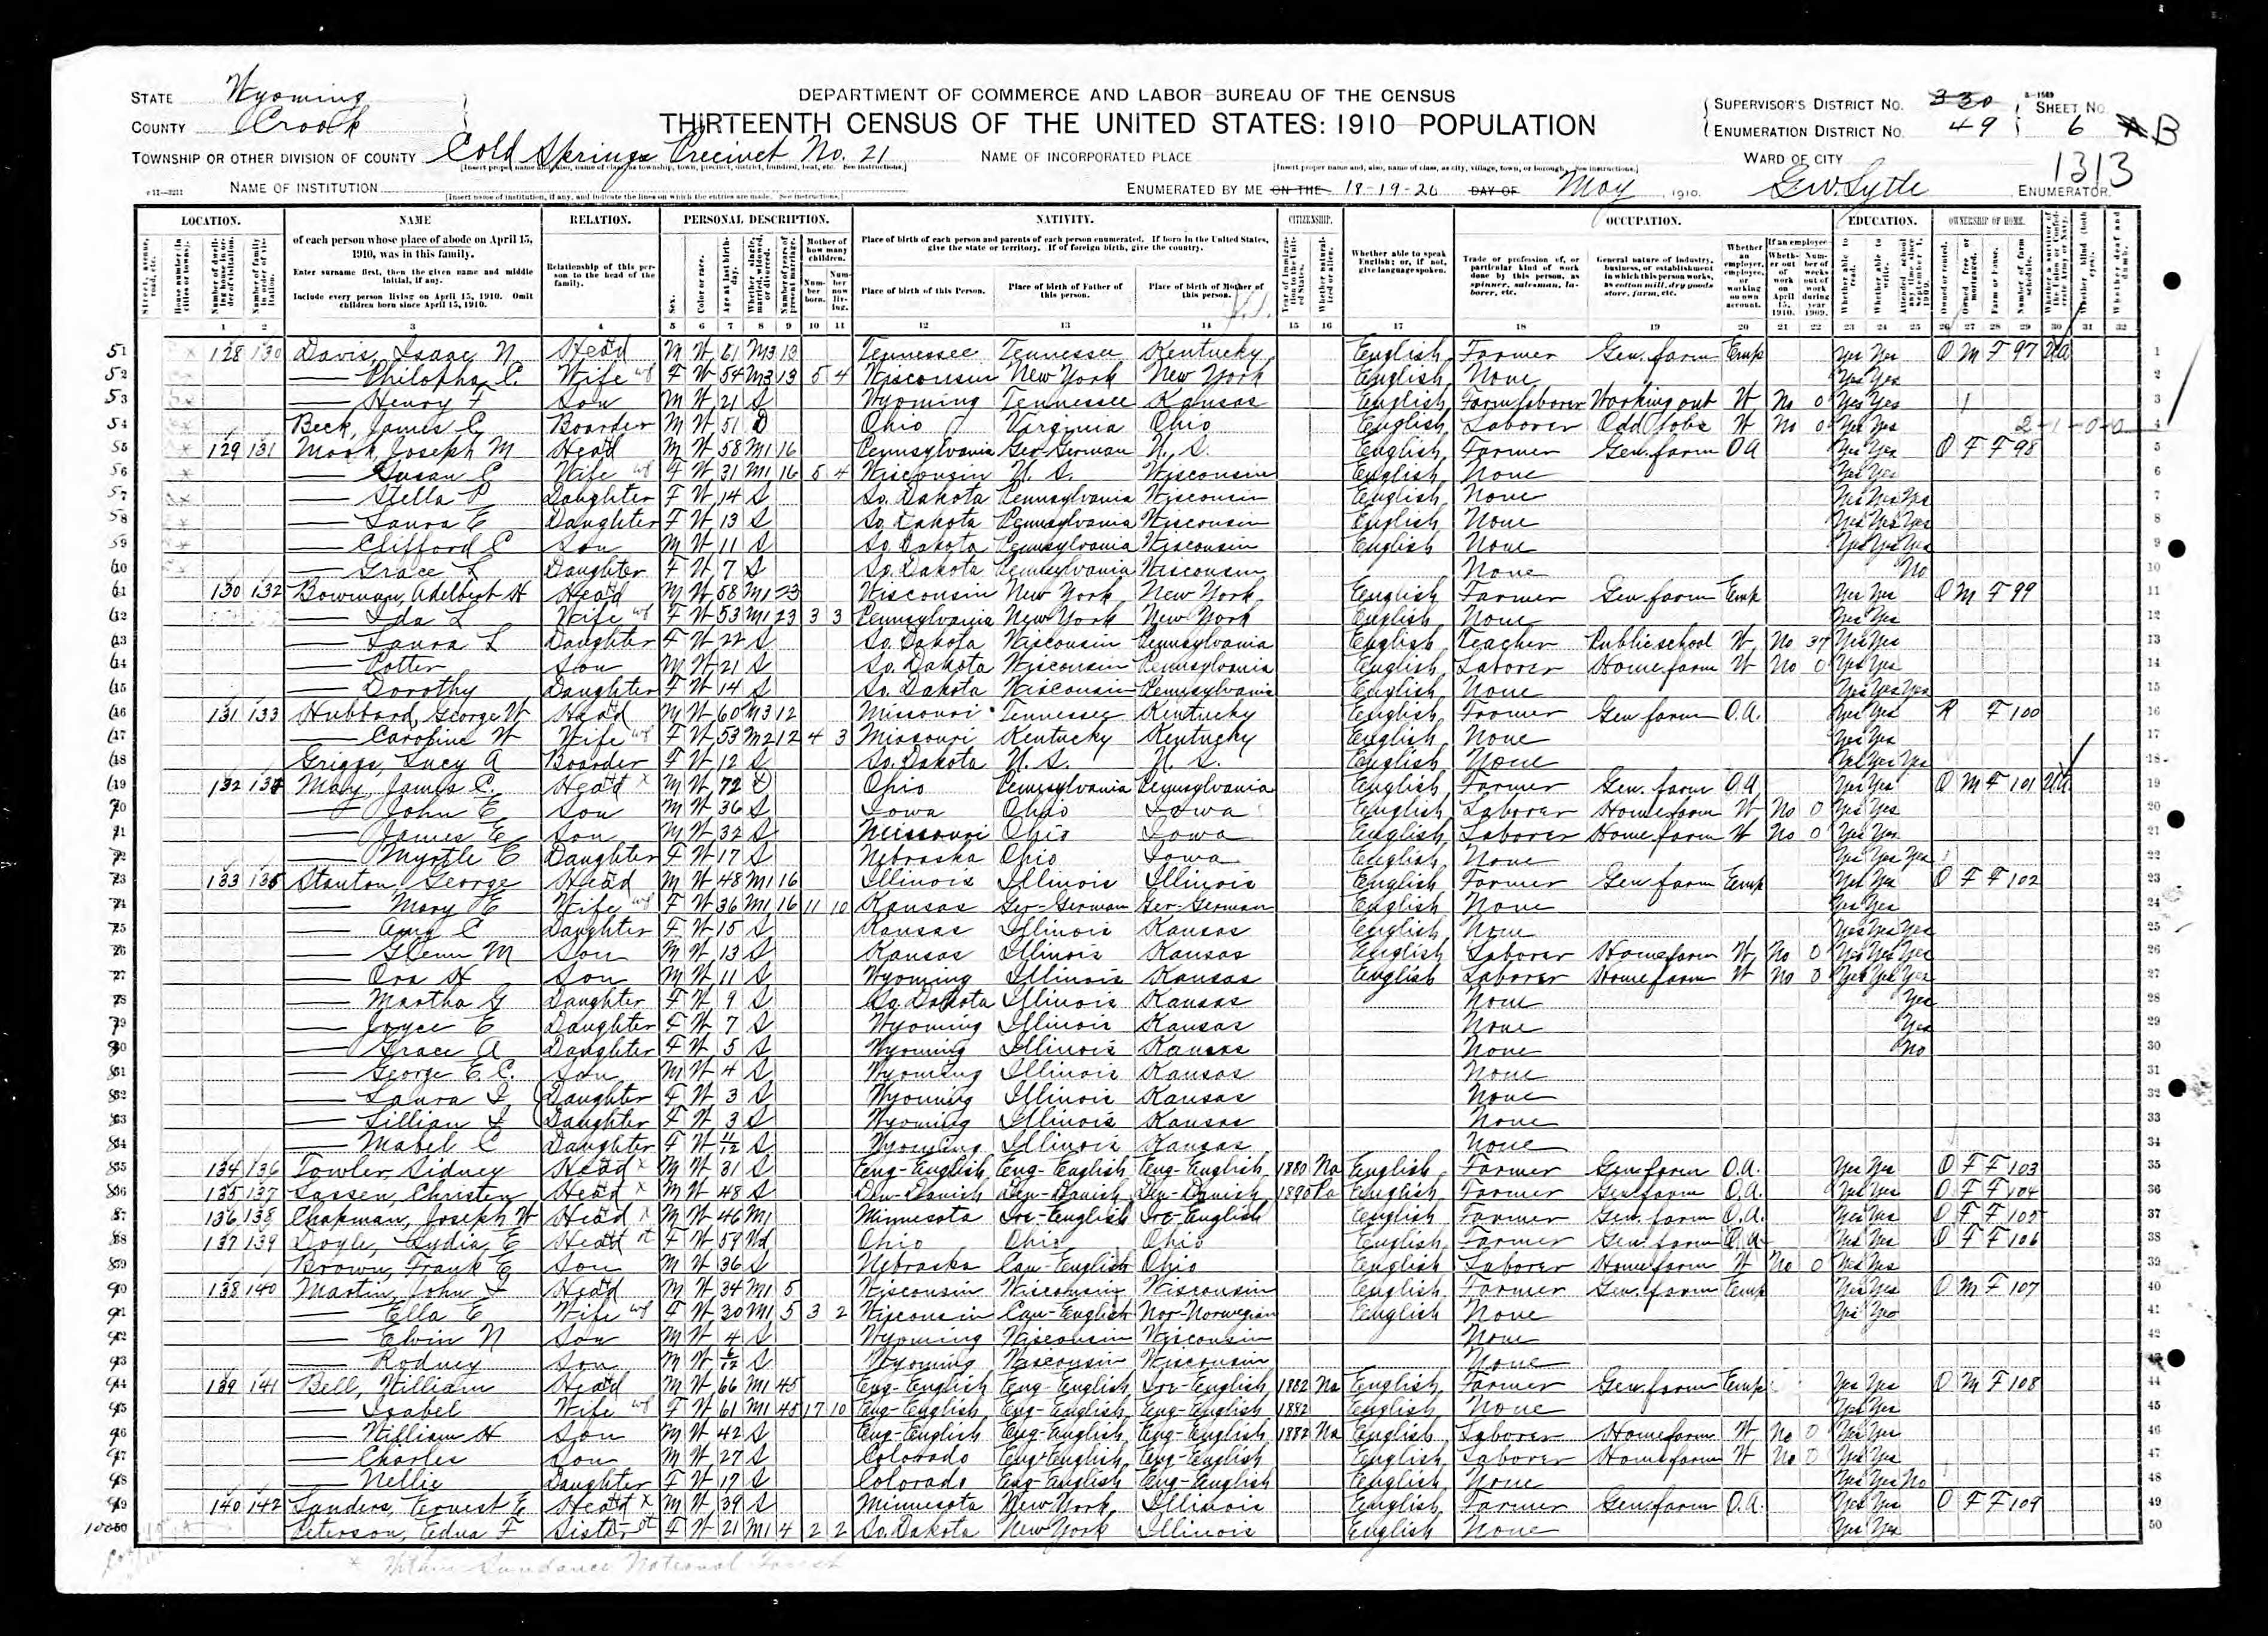 DEPARTMENT OF COMMERCE AND LABOR-BUREAU OF THE CENSUS
THIRTEENTH CENSUS OF THE UNITED STATES: 1910 POPULATION
STATE Wyoming
COUNTY Crook
TOWNSHIP OR OTHER DIVISION OF COUNTY Cold Springs Precinct No. 21
NAME OF INCORPORATED PLACE
SUPERVISOR'S DISTRICT No. 330
ENUMERATION DISTRICT No. 49
SHEET No. 6 B
WARD OF CITY
1313
NAME OF INSTITUTION
ENUMERATED BY ME ON THE 18-19-20 DAY OF May, 1910. G.W. Lytle ENUMERATOR.
LOCATION. NAME RELATION. PERSONAL DESCRIPTION. NATIVITY. CITIZENSHIP. OCCUPATION. EDUCATION. OWNERSHIP OF HOME.
of each person whose place of abode on April 15, 1910, was in this family.
Enter surname first, then the given name and middle initial, if any.
Include every person living on April 15, 1910. Omit children born since April 15, 1910.
Relationship of this person to the head of the family.
Place of birth of each person and parents of each person enumerated. If born in the United States, give the state or territory. If of foreign birth, give the country.
Place of birth of this Person. Place of birth of Father of this person. Place of birth of Mother of this person.
Whether able to speak English; or, if not, give language spoken.
1 2 3 4 5 6 7 8 9 10 11 12 13 14 15 16 17 18 19 20 21 22 23 24 25 26 27 28 29 30 31 32
51 128 130 Davis, Isaac N Head M W 61 M3 13 Tennessee Tennessee Kentucky English Farmer Gen. farm Emp Yes Yes O M F 97 UA 1
52 — C. Wife F W 54 M3 13 5 4 Wisconsin New York New York English None Yes Yes 2
53 — Henry F Son M W 21 S Wyoming Tennessee Kansas English Farm laborer Working out W No 0 Yes Yes 3
54 Beck, James C Boarder M W 51 D Ohio Virginia Ohio English Laborer Odd Jobs W No 0 Yes Yes 2-1-0-0 4
55 129 131 Joseph M Head M W 58 M1 16 Pennsylvania Ger-German U.S. English Farmer Gen. farm OA Yes Yes O F F 98 5
56 — Susan C Wife F W 31 M1 16 5 4 Wisconsin U.S. Wisconsin English None Yes Yes 6
57 — Stella P Daughter F W 14 S So. Dakota Pennsylvania Wisconsin English None Yes Yes Yes 7
58 — Laura E Daughter F W 13 S So. Dakota Pennsylvania Wisconsin English None Yes Yes Yes 8
59 — Clifford C Son M W 11 S So. Dakota Pennsylvania Wisconsin English None Yes Yes Yes 9
60 — Grace L Daughter F W 7 S So. Dakota Pennsylvania Wisconsin None No 10
61 130 132 Bowman, Adelbert H Head M W 58 M1 23 Wisconsin New York New York English Farmer Gen farm Emp Yes Yes O M F 99 11
62 — Ida L Wife F W 53 M1 23 3 3 Pennsylvania New York New York English None Yes Yes 12
63 — Laura L Daughter F W 22 S So. Dakota Wisconsin Pennsylvania English Teacher Public school W No 34 Yes Yes 13
64 — Potter Son M W 21 S So. Dakota Wisconsin Pennsylvania English Laborer Home farm W No 0 Yes Yes 14
65 — Dorothy Daughter F W 14 S So. Dakota Wisconsin Pennsylvania English None Yes Yes Yes 15
66 131 133 Hubbard, George W Head M W 60 M3 12 Missouri Tennessee Kentucky English Farmer Gen farm O.A. Yes Yes R F 100 16
67 — Caroline W Wife F W 53 M2 12 4 3 Missouri Kentucky Kentucky English None Yes Yes 17
68 Griggs, Lucy A Boarder F W 12 S So. Dakota U.S. U.S. English None Yes Yes Yes 18
69 132 134 May, James C. Head M W 72 D Ohio Pennsylvania Pennsylvania English Farmer Gen. farm O.A. Yes Yes O M F 101 UA 19
70 — John E Son M W 36 S Iowa Ohio Iowa English Laborer Home farm W No 0 Yes Yes 20
71 — James E Son M W 32 S Missouri Ohio Iowa English Laborer Home farm W No 0 Yes Yes 21
72 — Myrtle E Daughter F W 17 S Nebraska Ohio Iowa English None Yes Yes Yes 22
73 133 135 Stanton, George Head M W 48 M1 16 Illinois Illinois Illinois English Farmer Gen farm Emp Yes Yes O F F 102 23
74 — Mary E Wife F W 36 M1 16 11 10 Kansas Ger-German Ger-German English None Yes Yes 24
75 — Amy C Daughter F W 15 S Kansas Illinois Kansas English None Yes Yes Yes 25
76 — Glenn M Son M W 13 S Kansas Illinois Kansas English Laborer Home farm W No 0 Yes Yes Yes 26
77 — Ora H Son M W 11 S Wyoming Illinois Kansas English Laborer Home farm W No 0 Yes Yes Yes 27
78 — Martha G Daughter F W 9 S So. Dakota Illinois Kansas None Yes 28
79 — Joyce E Daughter F W 7 S Wyoming Illinois Kansas None Yes 29
80 — Grace A Daughter F W 5 S Wyoming Illinois Kansas None No 30
81 — George E. C. Son M W 4 S Wyoming Illinois Kansas None 31
82 — Laura I Daughter F W 3 S Wyoming Illinois Kansas None 32
83 — Lillian I Daughter F W 3 S Wyoming Illinois Kansas None 33
84 — Mabel C Daughter F W 11/12 S Wyoming Illinois Kansas None 34
85 134 136 Towler, Sidney Head M W 31 S Eng-English Eng-English Eng-English 1880 Na English Farmer Gen farm O.A. Yes Yes O F F 103 35
86 135 137 Lassen, Christen Head M W 48 S Den-Danish Den-Danish Den-Danish 1890 Pa English Farmer Gen farm O.A. Yes Yes O F F 104 36
87 136 138 Chapman, Joseph W Head M W 46 M1 Minnesota Ire-English Ire-English English Farmer Gen. farm O.A. Yes Yes O F F 105 37
88 137 139 Doyle, Lydia E Head F W 59 Wd Ohio Ohio Ohio English Farmer Gen. farm O.A. Yes Yes O F F 106 38
89 Brown, Frank E Son M W 36 S Nebraska Can-English Ohio English Laborer Home farm W No 0 Yes Yes 39
90 138 140 Martin, John I Head M W 34 M1 5 Wisconsin Wisconsin Wisconsin English Farmer Gen. farm Emp Yes Yes O M F 107 40
91 — Ella E Wife F W 30 M1 5 3 2 Wisconsin Can-English Nor-Norwegian English None Yes Yes 41
92 — Elvin N Son M W 4 S Wyoming Wisconsin Wisconsin None 42
93 — Rodney Son M W 6/12 S Wyoming Wisconsin Wisconsin None 43
94 139 141 Bell, William Head M W 66 M1 45 Eng-English Eng-English Ire-English 1882 Na English Farmer Gen farm Emp Yes Yes O M F 108 44
95 — Isabel Wife F W 61 M1 45 17 10 Eng-English Eng-English Eng-English 1882 English None Yes Yes 45
96 — William H Son M W 42 S Eng-English Eng-English Eng-English 1882 Na English Laborer Home farm W No 0 Yes Yes 46
97 — Charles Son M W 27 S Colorado Eng-English Eng-English English Laborer Home farm W No 0 Yes Yes 47
98 — Nellie Daughter F W 17 S Colorado Eng-English Eng-English English None Yes Yes No 48
99 140 142 Sanders, Ernest E Head M W 39 S Minnesota New York Illinois English Farmer Gen farm O.A. Yes Yes O F F 109 49
100 Peterson, Edna F Sister F W 21 M1 4 2 2 So. Dakota New York Illinois English None Yes Yes 50
* Within Sundance National Forest